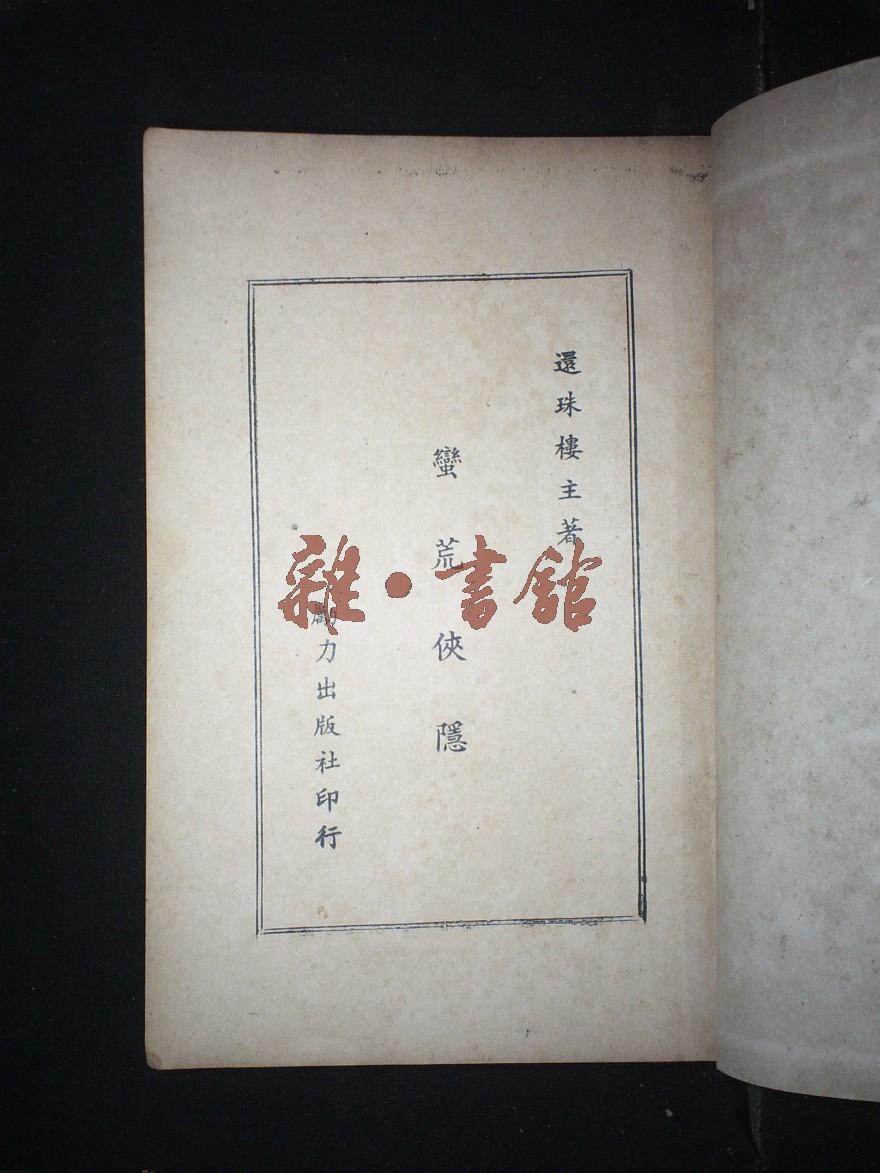 還珠樓主著
蠻荒俠隱
勵力出版社印行
雜・書館